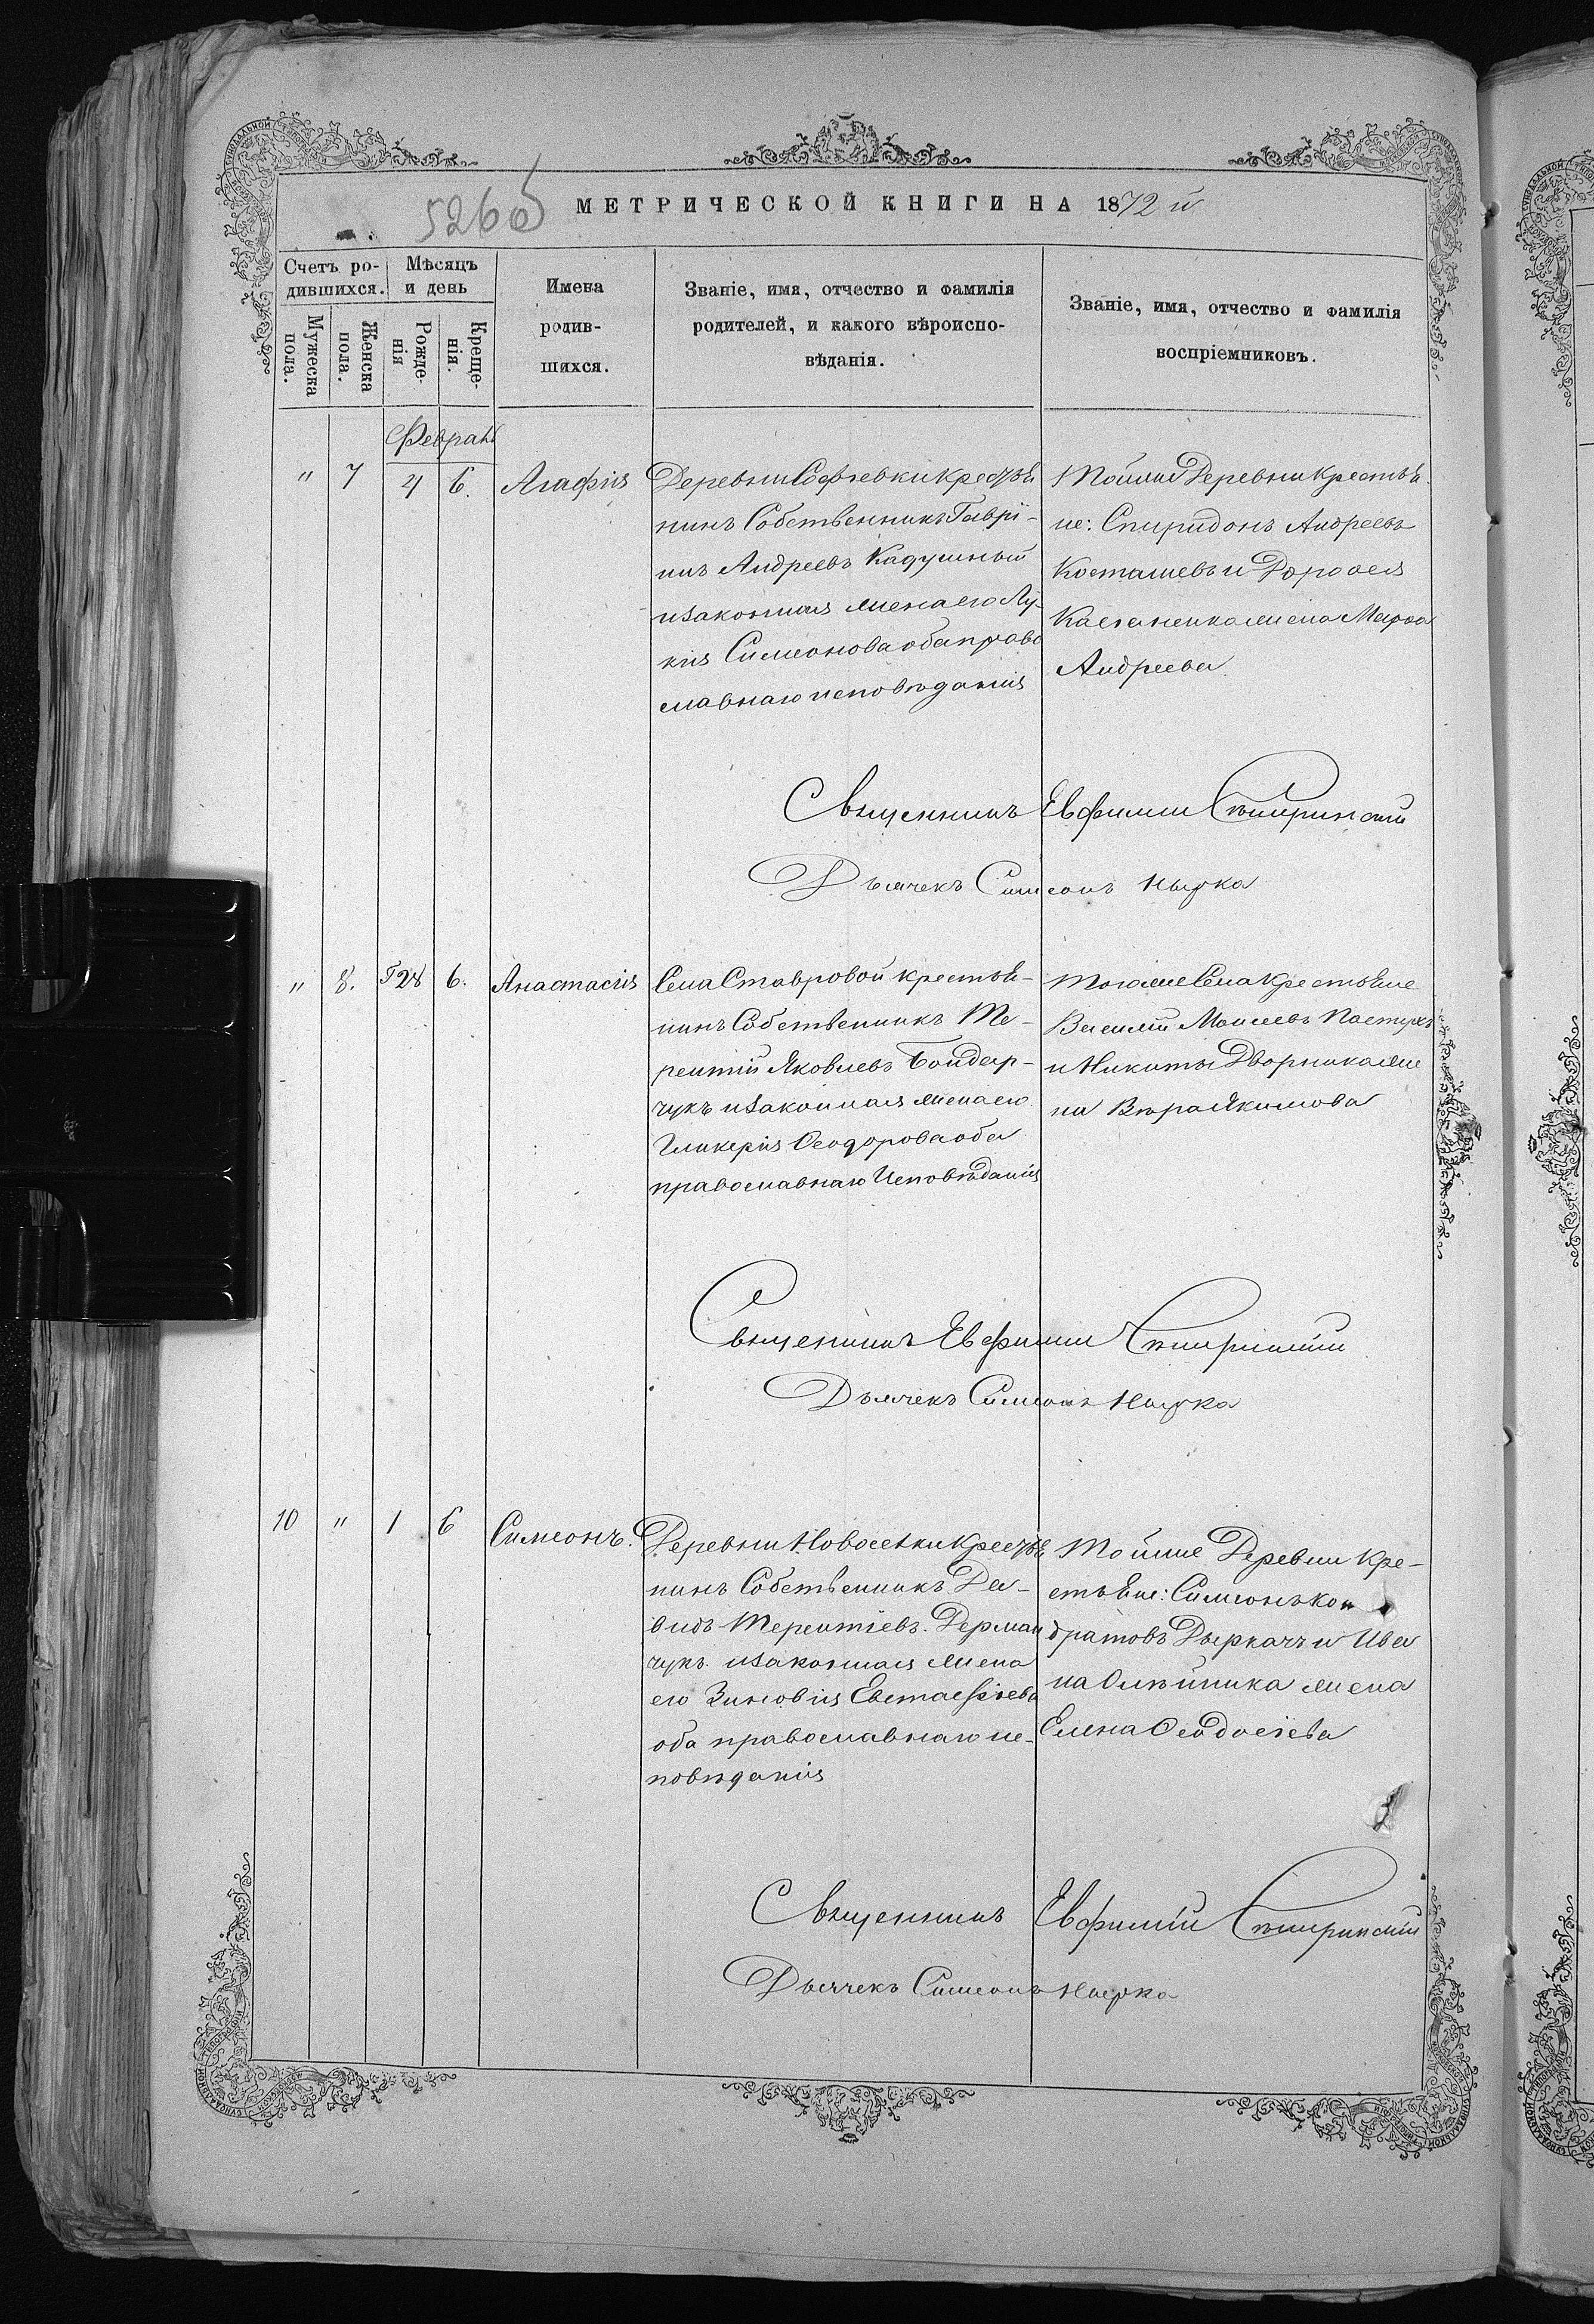 526об
МЕТРИЧЕСКОЙ КНИГИ НА 1872 й
Счетъ ро-
дившихся.
Мѣсяцъ
и день
Мужеска
пола.
Женска
пола.
Рожде-
нія
Креще-
нія.
Имена
родив-
шихся.
Званіе, имя, отчество и фамилія
родителей, и какого вѣроиспо-
вѣданія.
Званіе, имя, отчество и фамилія
воспріемниковъ.
Февраль
" 7 4 6. Агафія
Деревни Софіевки крестья
нинъ Собственникъ Гаврі-
илъ Андреевъ Кадушный
и законная жена его Лу-
кія Симеонова оба право
славнаго исповѣданія
Тойже Деревни крестья
не: Спиридонъ Андреевъ
Косташевъ и
жена Марфа
Андреева.
Священникъ Евфимій
Дьячекъ Симеонъ
" 8. 6. Анастасія
Села Ставровой крестья-
нинъ Собственникъ Те-
рентій Яковлевъ Бондар-
чукъ и законная жена его
Гликерія Ѳеодорова оба
православнаго Исповѣданія
тогоже Села крестьяне
Василій Моисеевъ Пастухъ
и Никиты Дворника же
на Вѣра Якимова
Священникъ Евфимій
Дьячекъ Симеонъ
10 " 1 6 Симеонъ.
Деревни Новоселки крестья
нинъ Собственникъ Да-
видъ Терентіевъ Дерман
чукъ и законная жена
его Зиновія Евстафіева
оба православнаго ис-
повѣданія
Тойже Деревни кре-
стьяне: Симеонъ Кон
дратовъ Дыркачъ и Ива
на Олѣйника жена
Елена Ѳеодосіева
Священникъ Евфимій
Дьячекъ Симеонъ